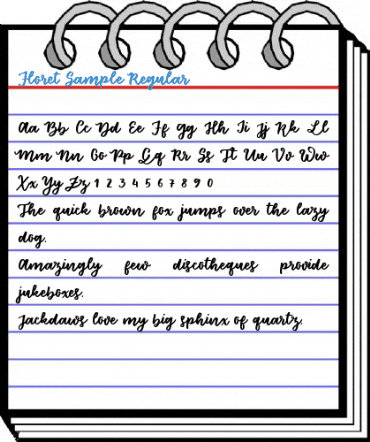 Floret Sample Regular
Aa Bb Cc Dd Ee Ff Gg Hh Ii Jj Kk Ll
Mm Nn Oo Pp Qq Rr Ss Tt Uu Vv Ww
Xx Yy Zz 1 2 3 4 5 6 7 8 9 0
The quick brown fox jumps over the lazy
dog.
Amazingly few discotheques provide
jukeboxes.
Jackdaws love my big sphinx of quartz.